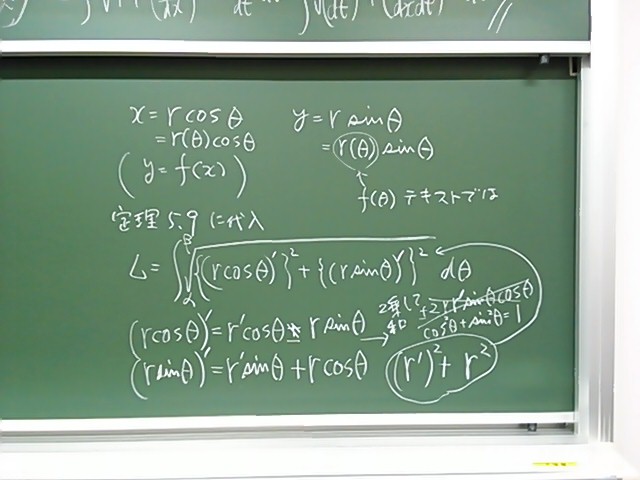 x = r cos θ
= r(θ) cos θ
(y = f(x))
y = r sin θ
= r(θ) sin θ
f(θ) テキストでは
定理 5.9 に代入
L = ∫_α^β √{(r cos θ)'}² + {(r sin θ)'}² dθ
(r cos θ)' = r' cos θ - r sin θ
(r sin θ)' = r' sin θ + r cos θ
→ 2乗して
和
±2rr' sin θ cos θ
cos²θ + sin²θ = 1
(r')² + r²